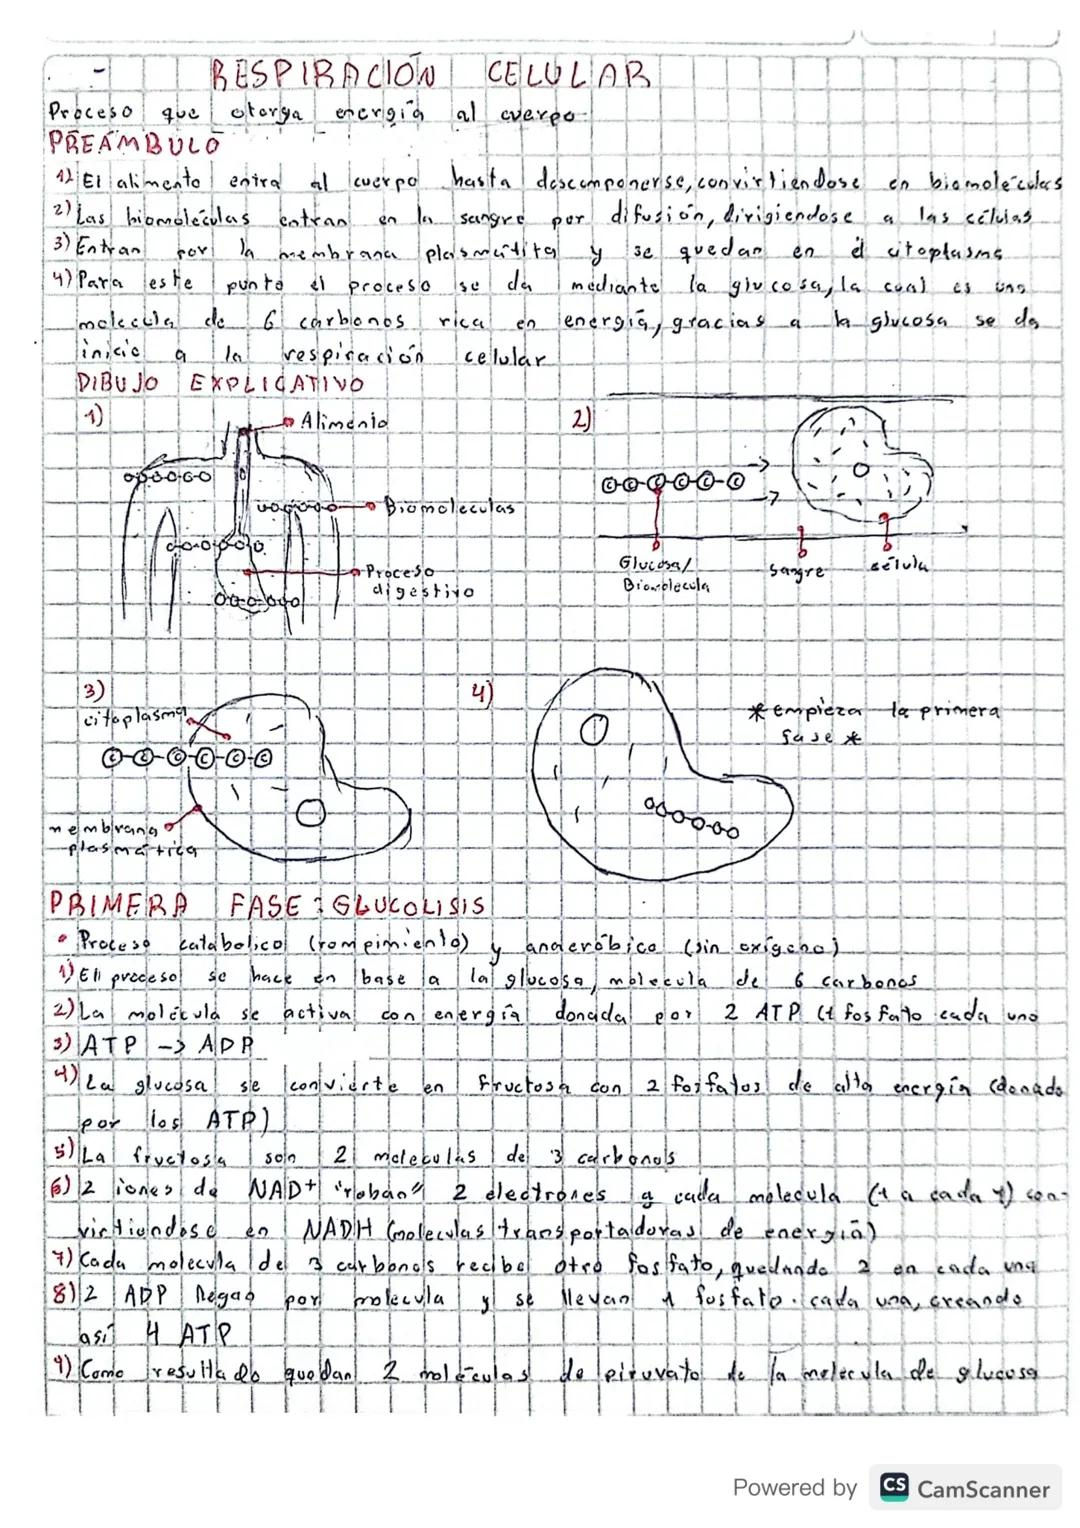 RESPIRACIÓN CELULAR
Proceso que otorga energía al cuerpo
PREÁMBULO
1) El alimento entra al cuerpo hasta descomponerse, convirtiendose en biomoléculas
2) Las biomoleculas entran en la sangre por difusión, dirigiendose a las células
3) Entran por la membrana plasmática y se quedan en él citoplasma
4) Para este punto el proceso se da mediante la glucosa, la cual es una
molecula de 6 carbonos rica en energía, gracias a la glucosa se da
inicio a la respiración celular
DIBUJO EXPLICATIVO
1)
Alimento
2)
Biomoleculas
Proceso
digestivo
C-C-C-C-C-C
Glucosa/
Biomolecula
Sangre
célula
3)
citoplasma
C-C-C-C-C-C
membrana
plasmática
4)
* empieza la primera
fase *
PRIMERA FASE: GLUCOLISIS
• Proceso catabolico (rompimiento) y anaeróbico (sin oxígeno)
1) El proceso se hace en base a la glucosa, molecula de 6 carbonos
2) La molécula se activa con energía donada por 2 ATP (1 fosfato cada uno
3) ATP -> ADP
4) La glucosa se convierte en fructosa con 2 fosfatos de alta energía (donado
por los ATP)
5) La fructosa son 2 moleculas de 3 carbonos
6) 2 iones de NAD+ "roban" 2 electrones a cada molecula (1 a cada 1) con-
virtiendose en NADH (moleculas transportadoras de energía)
7) Cada molecula de 3 carbonos recibe otro fosfato, quedando 2 en cada una
8) 2 ADP llegan por molecula y se llevan 1 fosfato cada una, creando
así 4 ATP
9) Como resultado quedan 2 moléculas de piruvato de la molecula de glucosa
Powered by CS CamScanner